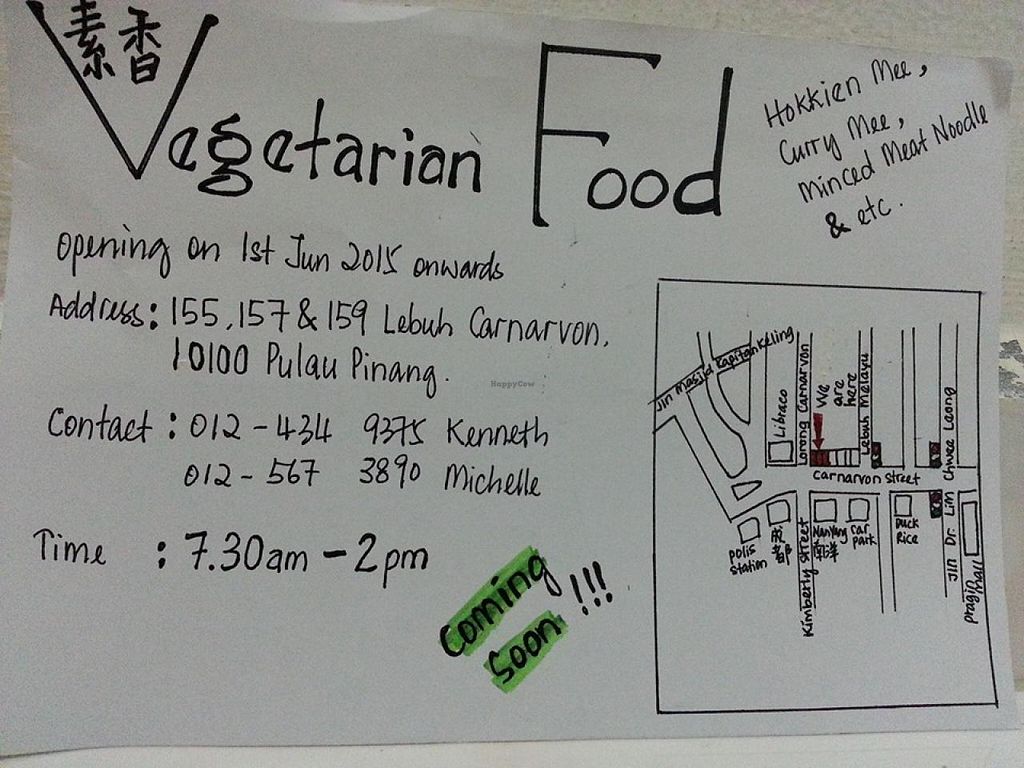 素香
Vegetarian Food
Hokkien Mee,
Curry Mee,
Minced Meat Noodle
& etc.
Opening on 1st Jun 2015 onwards
Address: 155, 157 & 159 Lebuh Carnarvon,
10100 Pulau Pinang.
Contact : 012-434 9375 Kenneth
012-567 3890 Michelle
Time : 7.30am - 2pm
Coming
Soon !!!
Jln Masjid Kapitan Keling
Libraco
Lorong Carnarvon
We
are
here
Lebuh Melayu
Chwee Leong
Carnarvon Street
Polis
Station
成都
Kimberly Street
Nanyang
南洋
Car
park
Duck
Rice
Jln Dr. Lim
Pragin Mall
HappyCow